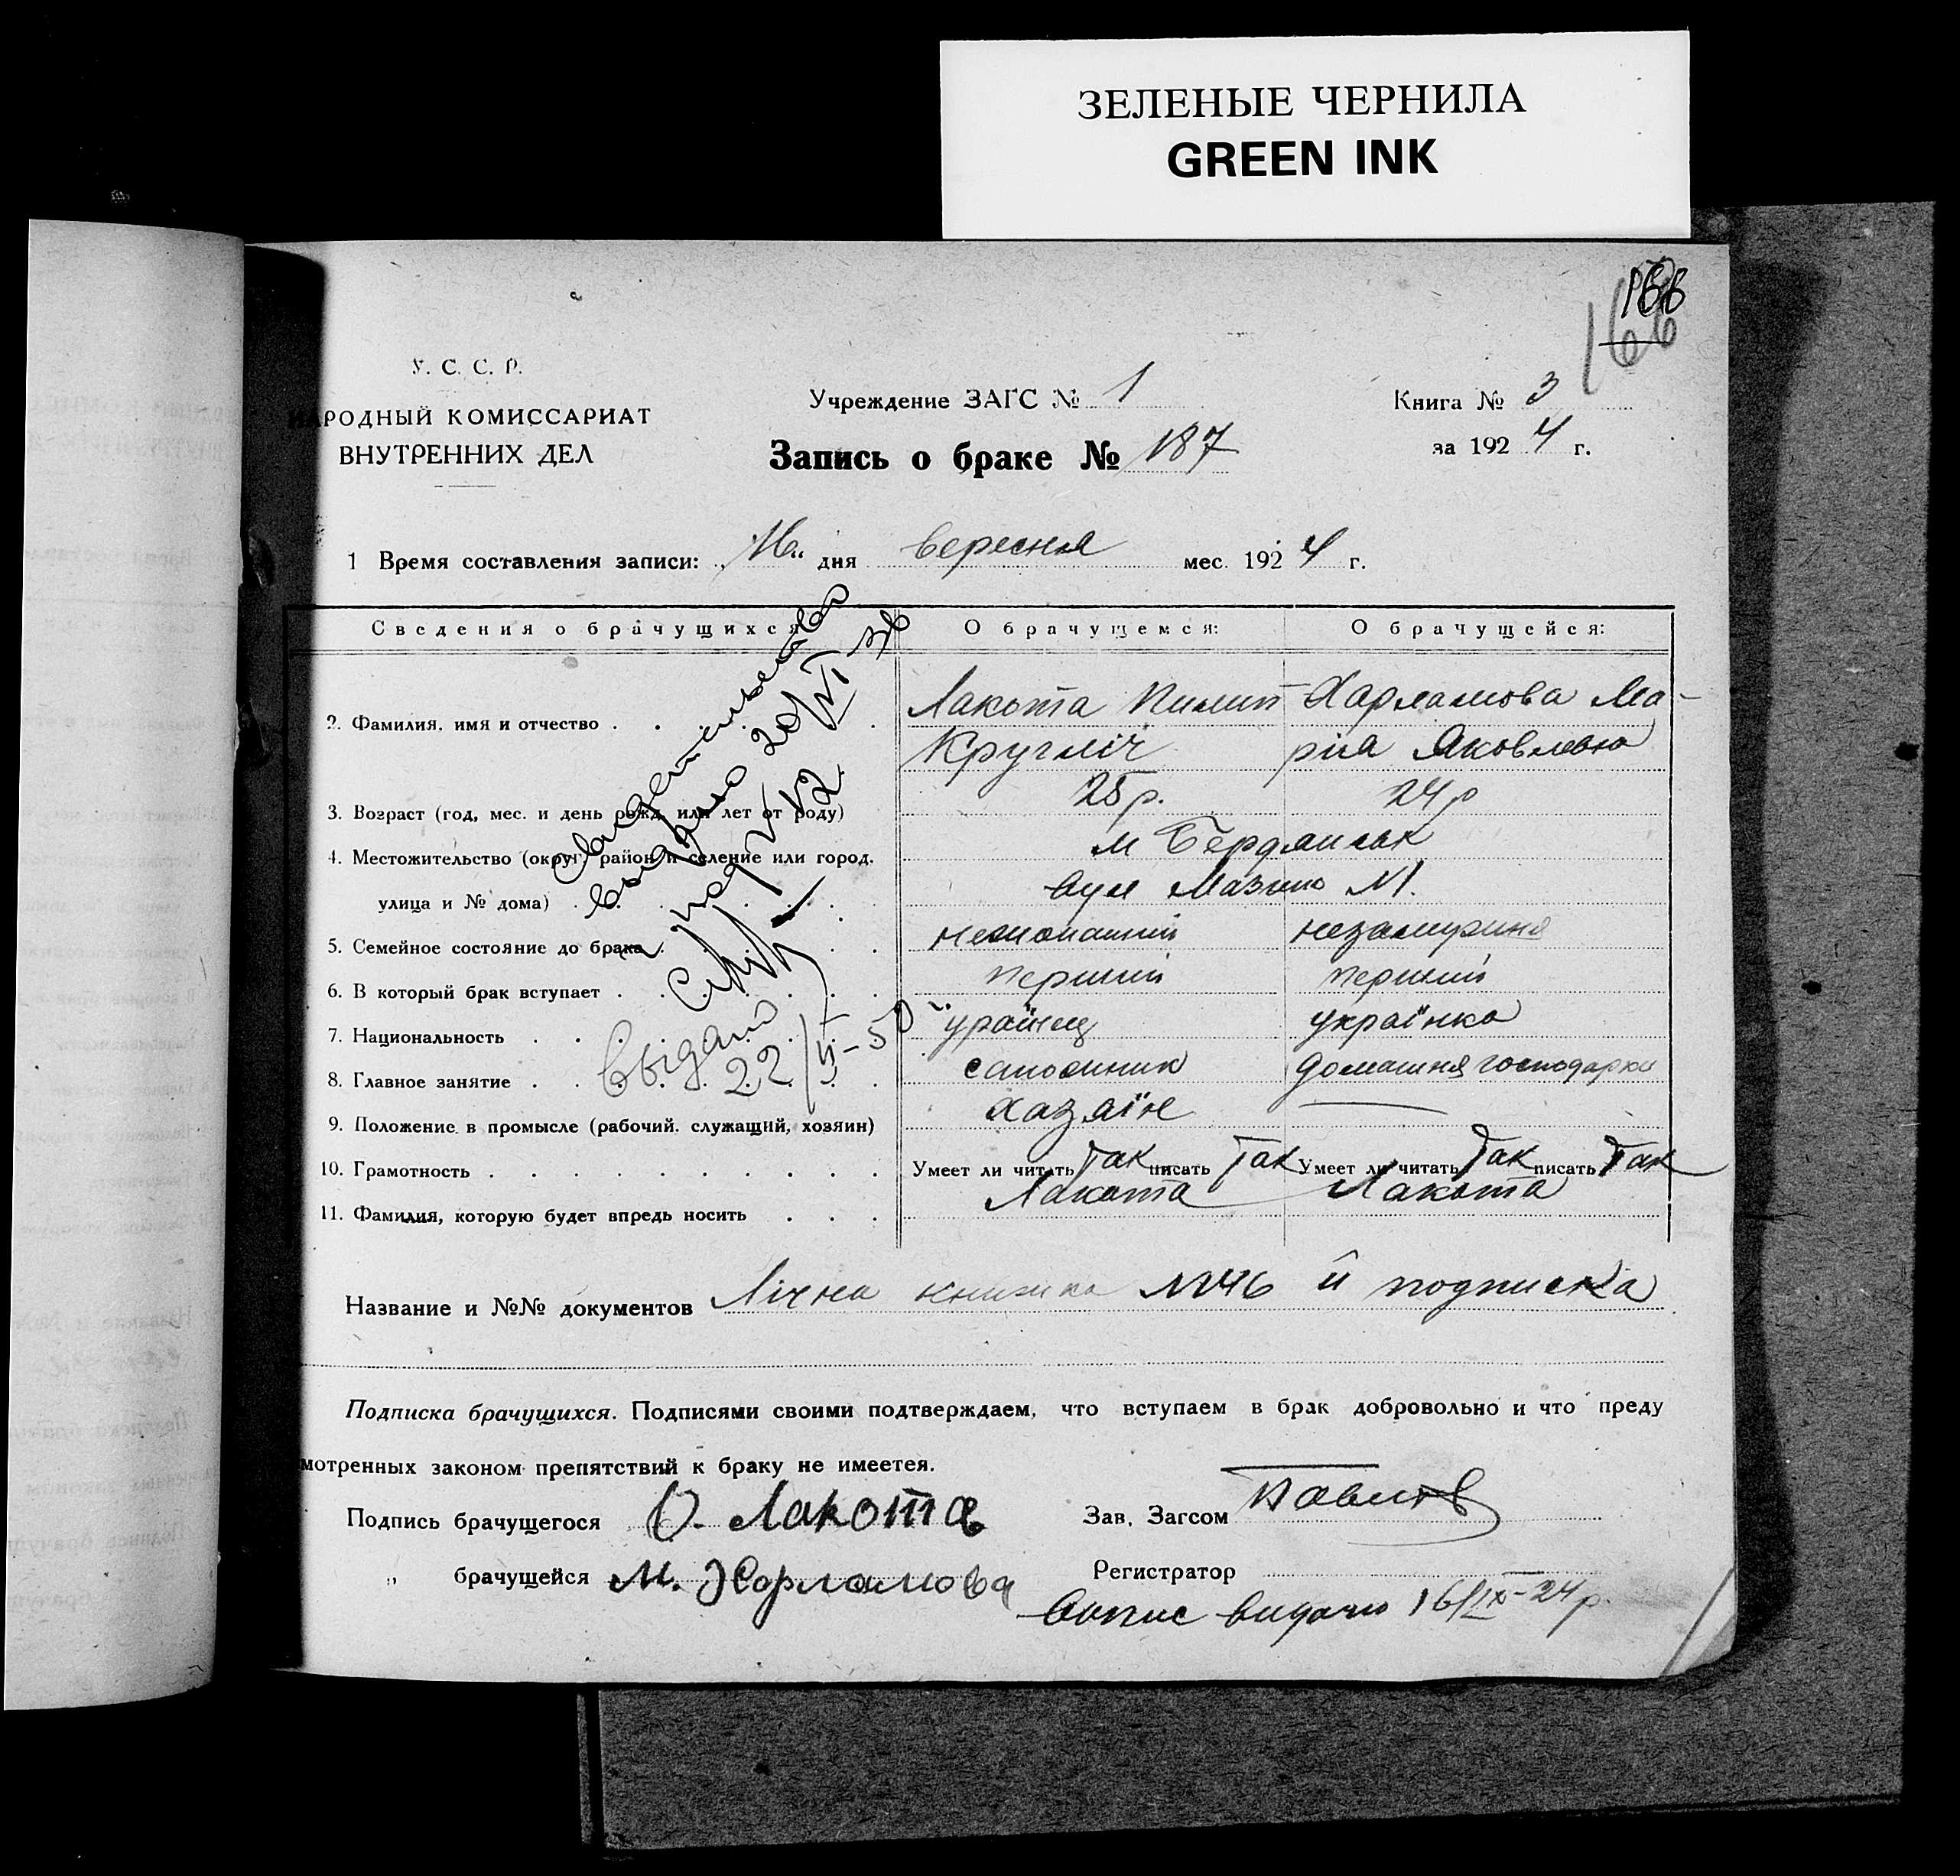 ЗЕЛЕНЫЕ ЧЕРНИЛА
GREEN INK
166
166
У. С. С. Р.
НАРОДНЫЙ КОМИССАРИАТ
ВНУТРЕННИХ ДЕЛ
Учреждение ЗАГС № 1
Книга № 3
за 1924 г.
Запись о браке № 187
1 Время составления записи: „16„ дня вересня мес. 1924 г.
Сведения о брачущихся
О брачущемся:
О брачущейся:
2. Фамилия, имя и отчество
Лакота Пилип
Харламова Ма-
рія Яковлевна
3. Возраст (год, мес. и день рожд. или лет от роду)
25 р.
24 р
4. Местожительство (округ, район и селение или город,
м Бердянськ
улица и № дома)
вул Мазино №1.
5. Семейное состояние до брака
нежонатий
незамужня
6. В который брак вступает
перший
перший
7. Национальность
українка
8. Главное занятие
домашня господарка
9. Положение в промысле (рабочий, служащий, хозяин)
хазяїн
10. Грамотность
Умеет ли читать Так писать Так
Умеет ли читать Так писать Так
11. Фамилия, которую будет впредь носить
Лакота
Лакота
Свидетельство
выдано 20/VI 36
под № 12
Выдано
22/VI-50 г.
Название и №№ документов Лічна книжка №746 й подписка
Подписка брачущихся. Подписями своими подтверждаем, что вступаем в брак добровольно и что преду
мотренных законом препятствий к браку не имеется.
Подпись брачущегося Лакота
Зав. Загсом
„ брачущейся М. Харламова
Регистратор
Випис видано 16/IX-24 р.